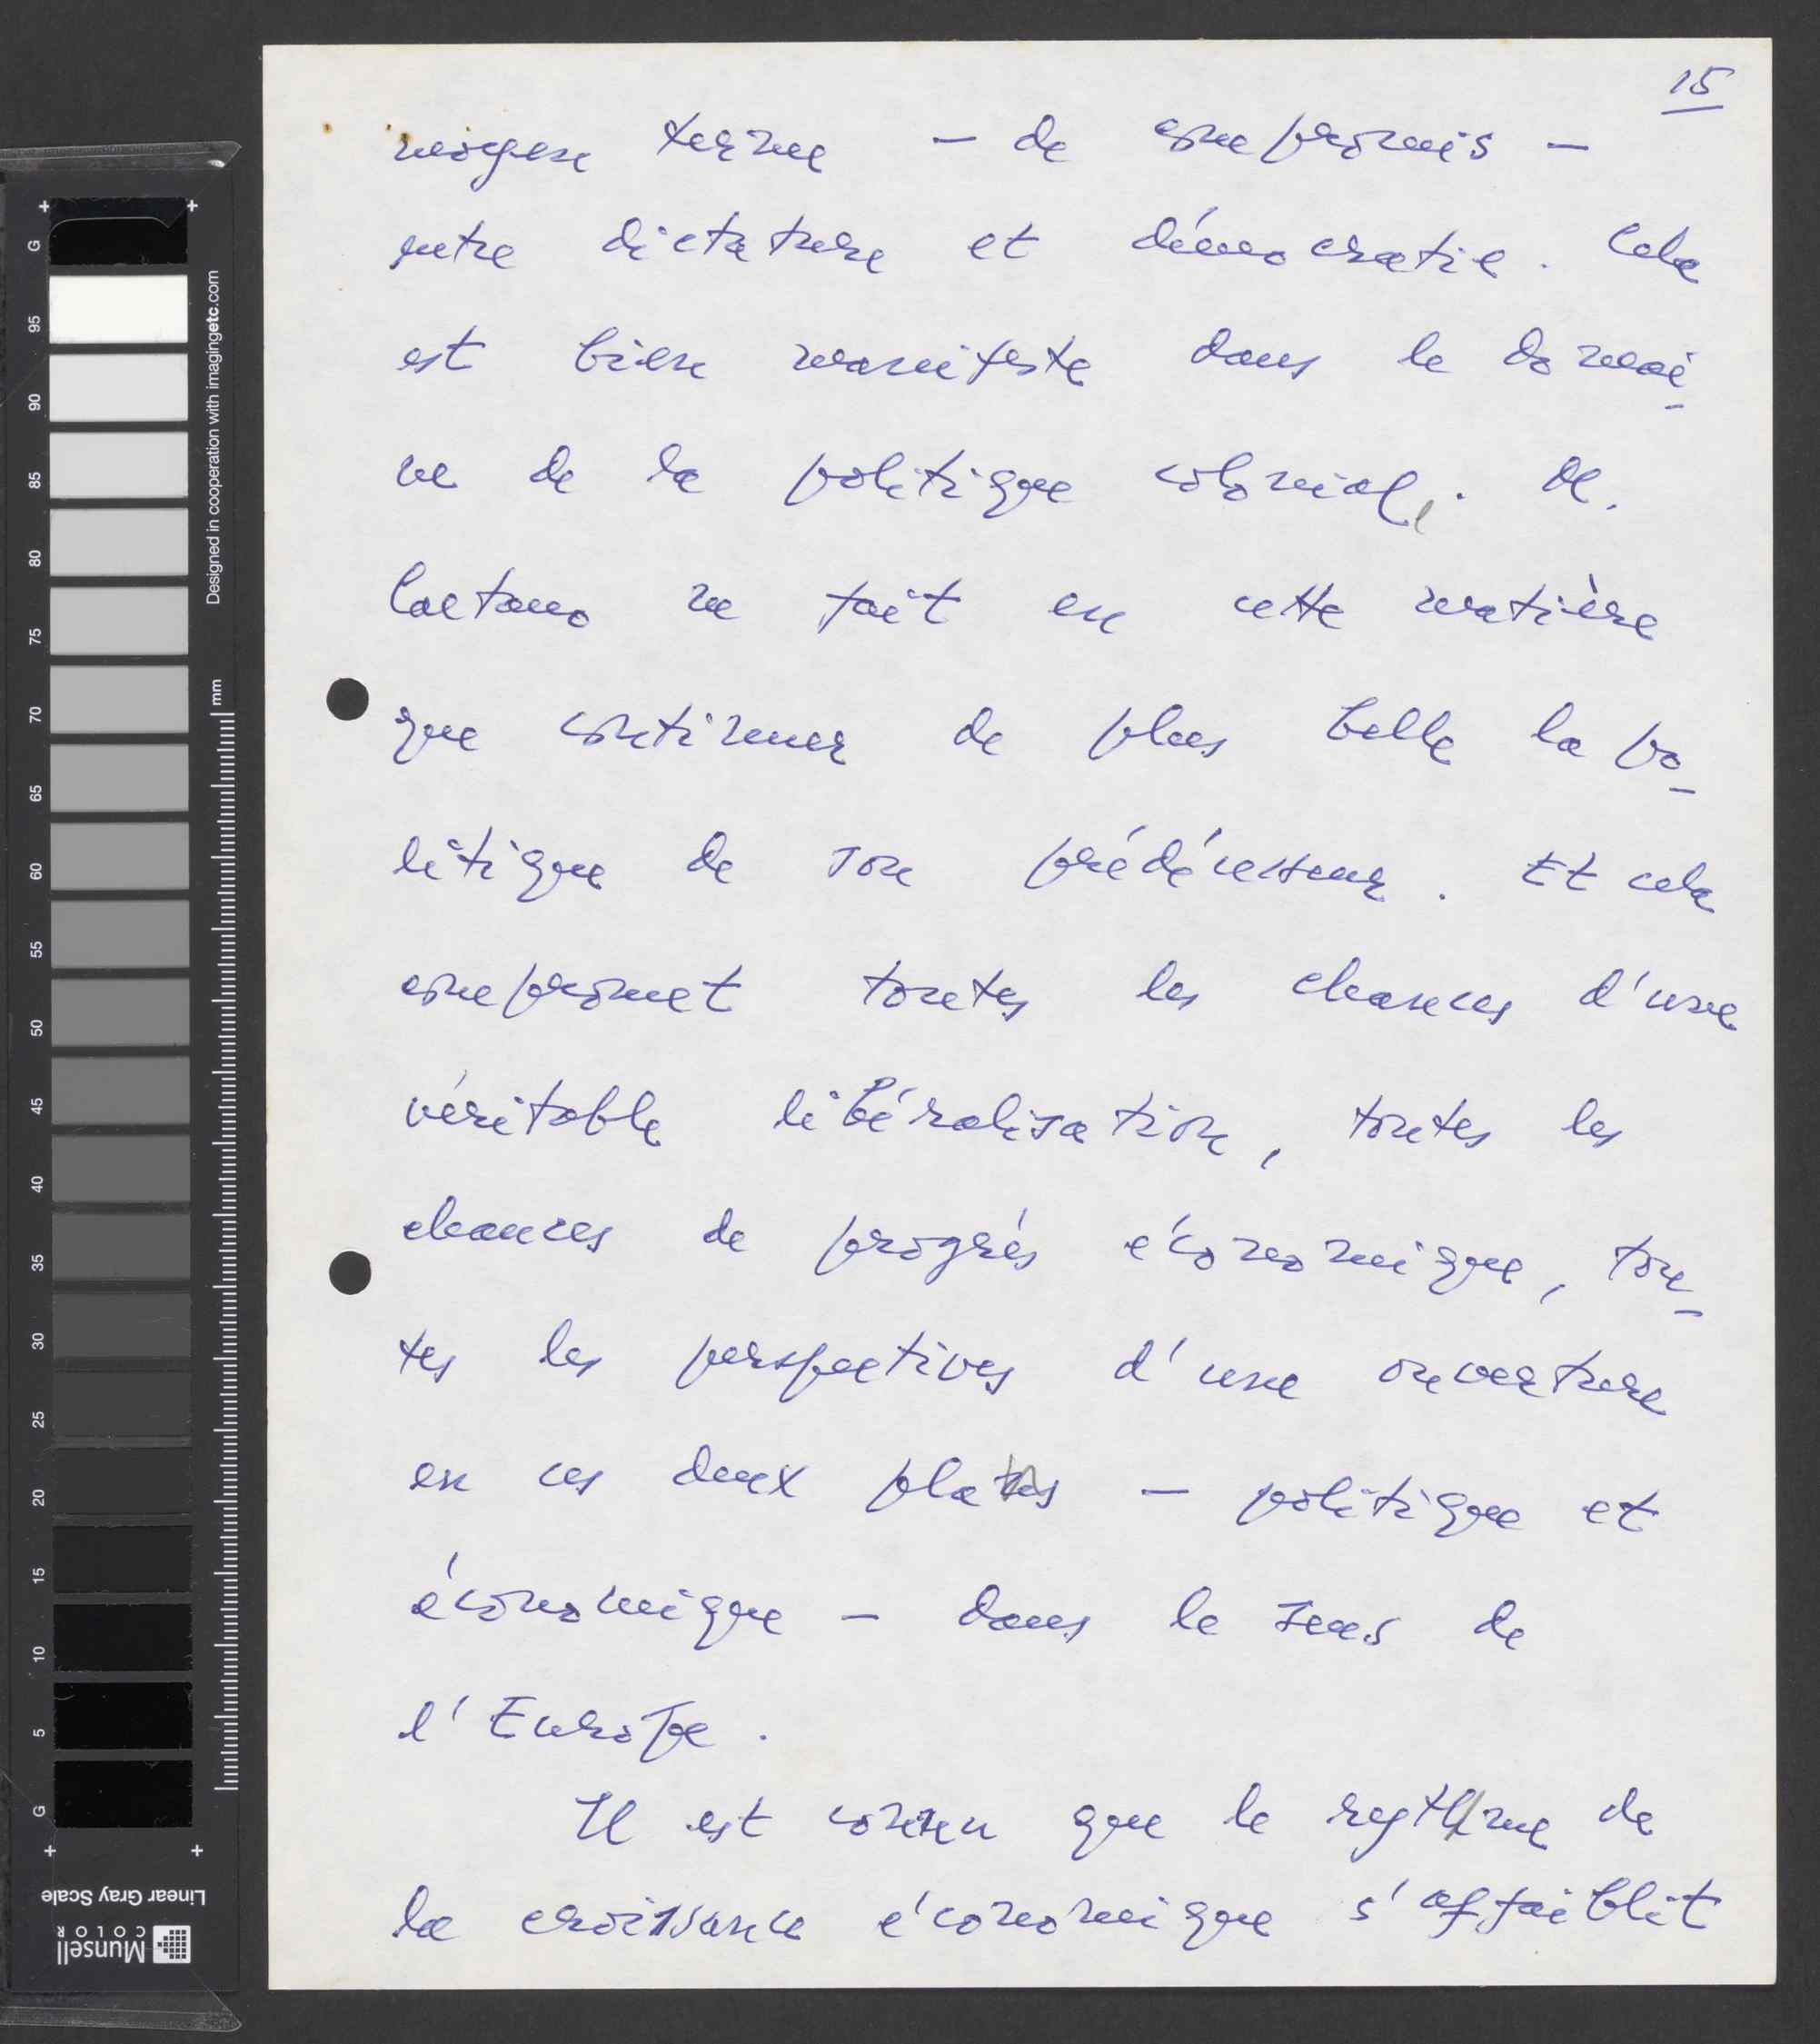 15
moyen terme – de compromis –
entre dictature et démocratie. Cela
est bien manifeste dans le domai-
ne de la politique coloniale. M.
Caetano ne fait en cette matière
que continuer de plus belle la po-
litique de son prédécesseur. Et cela
compromet toutes les chances d'une
véritable libéralisation, toutes les
chances de progrès économique, tou-
tes les perspectives d'une ouverture
en ces deux plans – politique et
économique – dans le sens de
l'Europe.
Il est connu que le rythme de
la croissance économique s'affaiblit
G
95
90
85
80
75
70
65
60
55
50
45
40
35
30
25
20
15
10
5
G
mm
Designed in cooperation with imagingetc.com
Linear Gray Scale
Munsell
COLOR